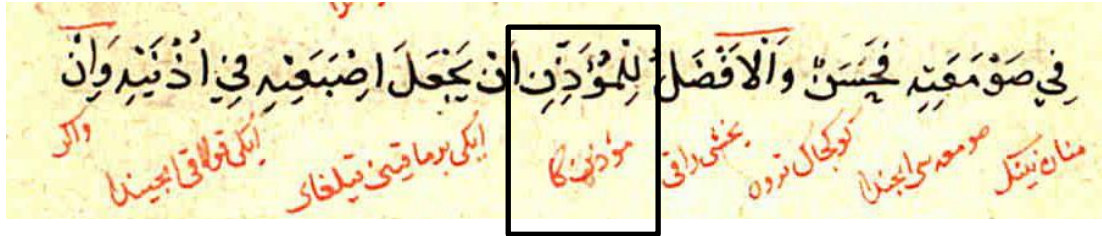 فِي صَوْمَعَتِهِ فَحَسَنٌ وَالْاَفْضَلُ لِلْمُؤَذِّنِ اَنْ يَجْعَلَ اِصْبَعَيْهِ فِي اُذْنَيْهِ وَاِنْ
صومعه سی ایچندا مؤذن كا ایكی برماقینی قیلغای ایكی قولاقی ایچیندا واكر